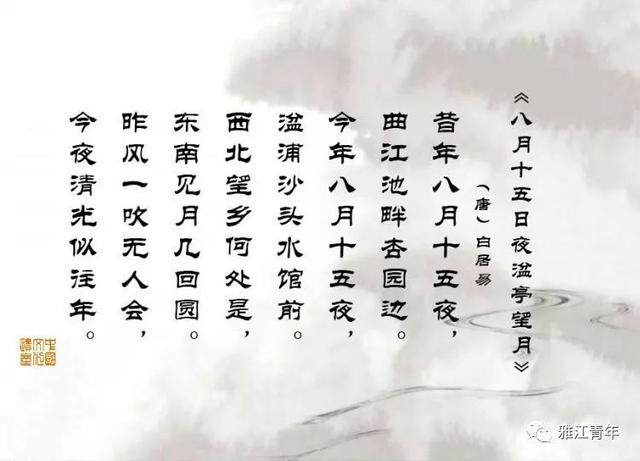 《八月十五日夜湓亭望月》
（唐）白居易
昔年八月十五夜，
曲江池畔杏园边。
今年八月十五夜，
湓浦沙头水馆前。
西北望乡何处是，
东南见月几回圆。
昨风一吹无人会，
今夜清光似往年。
雅江青年